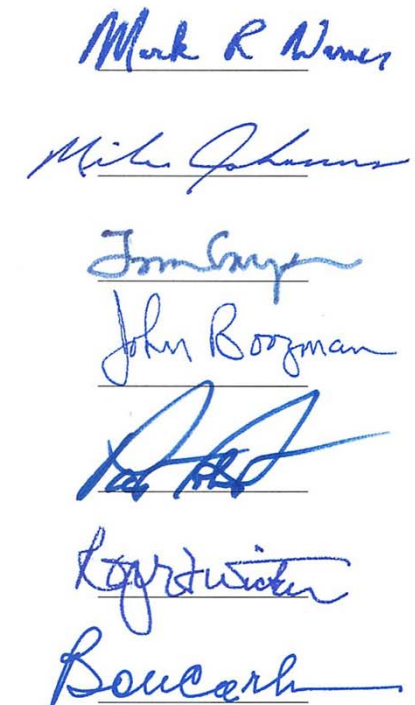 Mark R Warner
Mike Johanns
Tom Carper
John Boozman
Pat Roberts
Roger F Wicker